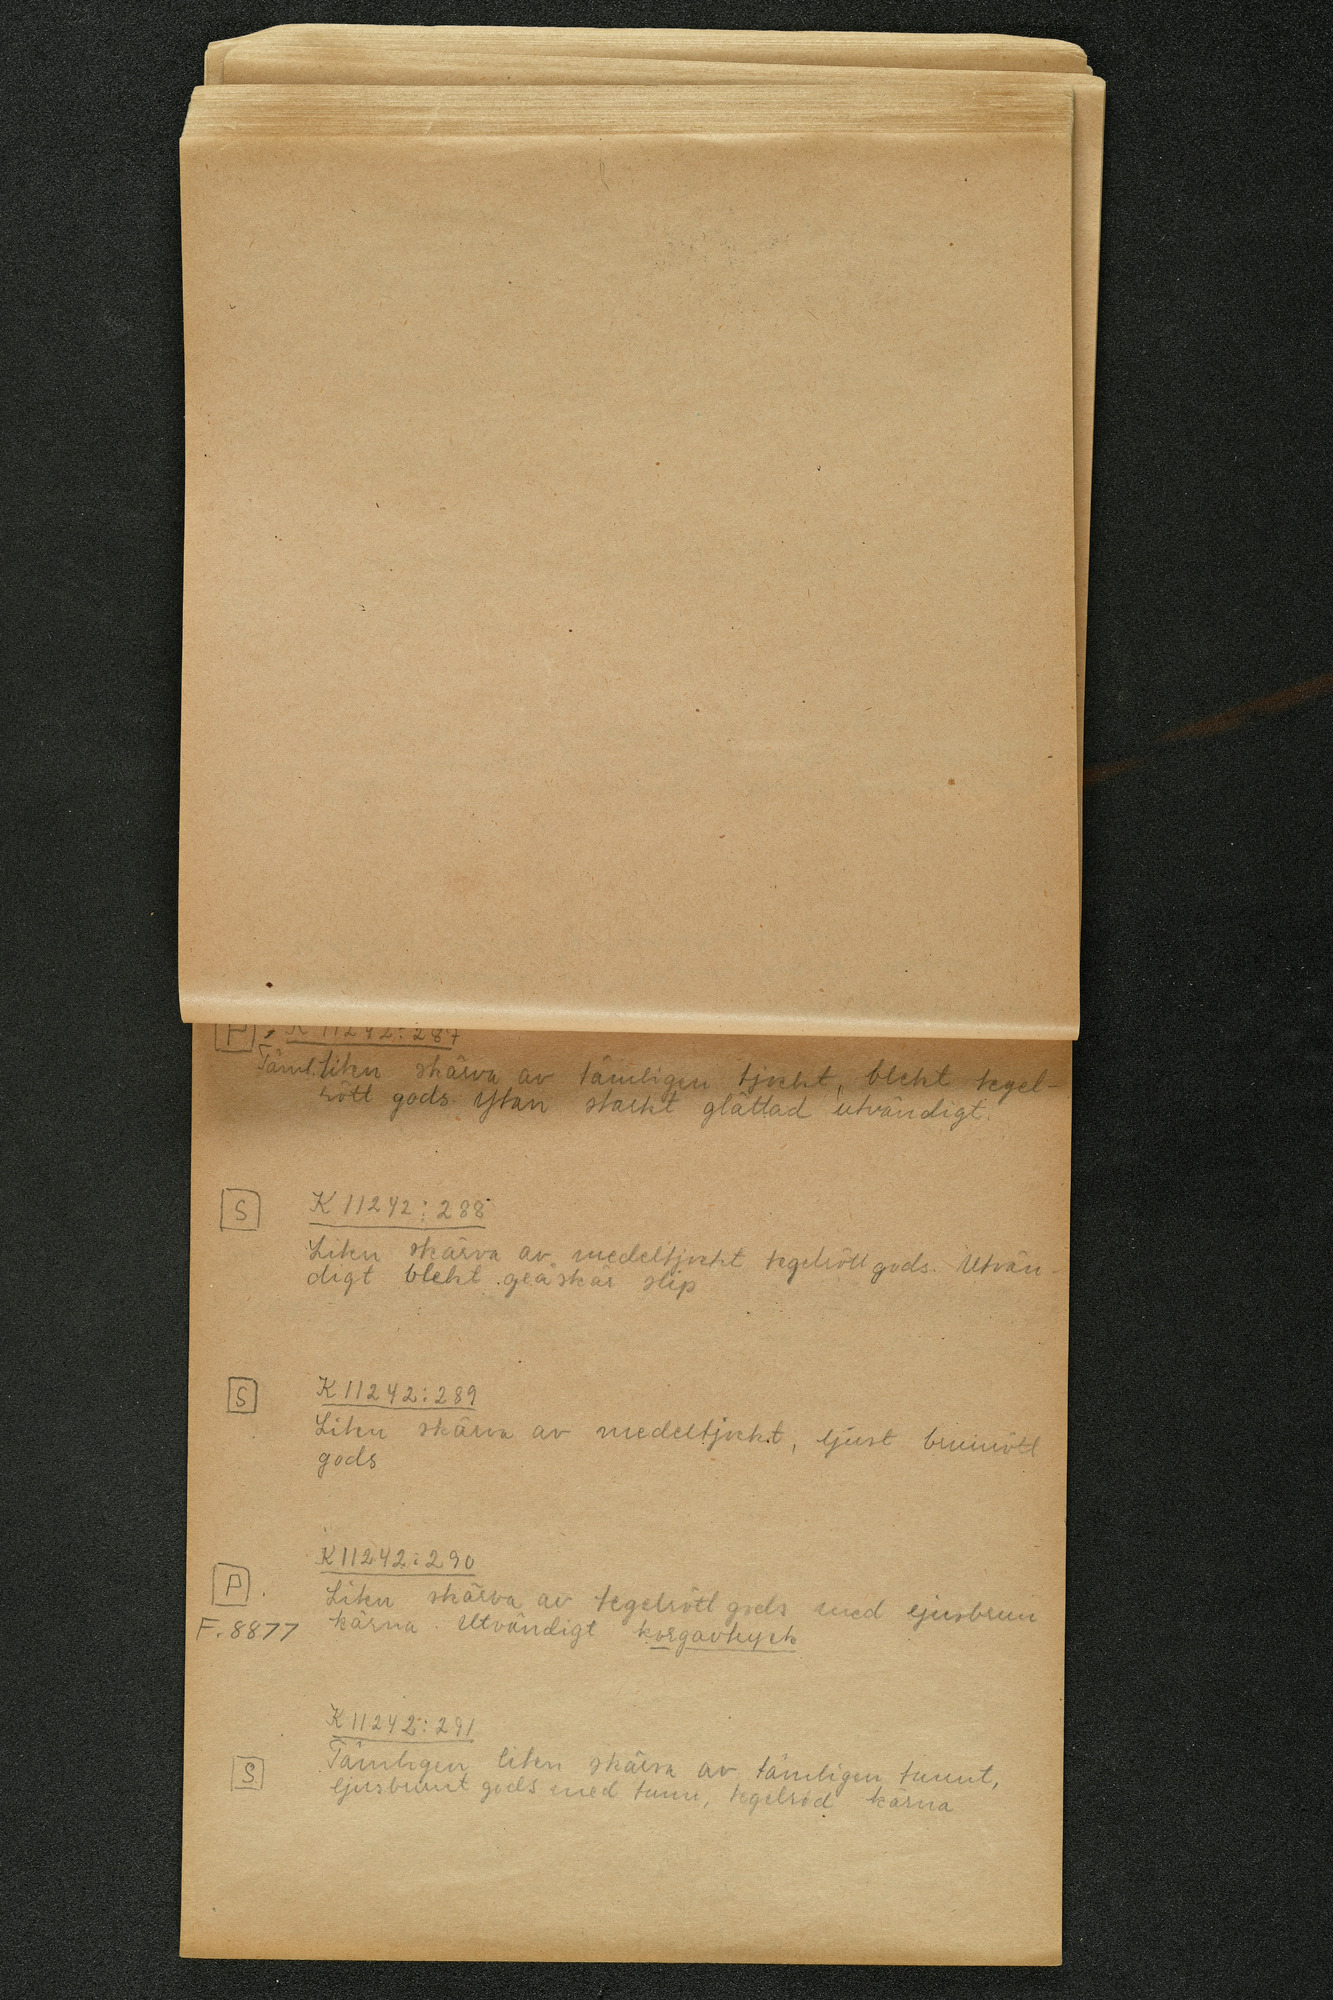 P K 11242:287
Täml. liten skärva av tämligen tjockt, blekt tegel-
rött gods. Ytan starkt glättad utvändigt.
S K 11242:288
Liten skärva av medeltjockt tegelrött gods. Utvän-
digt blekt gråskär slip
S K 11242:289
Liten skärva av medeltjockt, ljust brunrött
gods
K 11242:290
P. Liten skärva av tegelrött gods med ljusbrun
F. 8877 kärna. Utvändigt korgavtryck
K 11242:291
S Tämligen liten skärva av tämligen tunnt,
ljusbrunt gods med tunn, tegelröd kärna